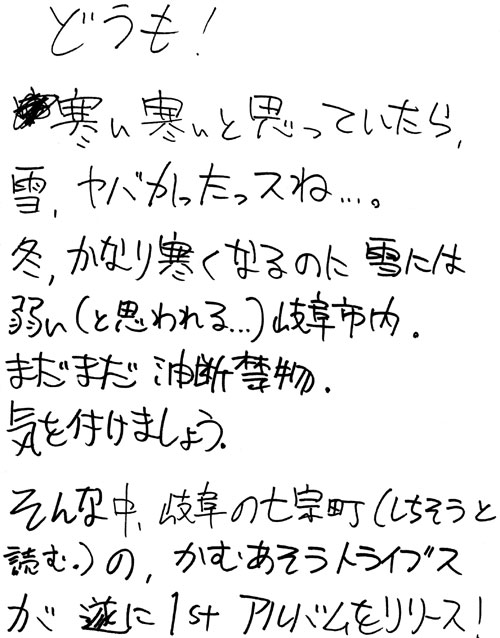 どうも!
寒い寒いと思っていたら,
雪,ヤバかったっスね…。
冬,かなり寒くなるのに雪には
弱い(と思われる…)岐阜市内.
まだまだ油断禁物.
気を付けましょう.
そんな中,岐阜の七宗町(しちそうと
読む。)の,かむあそうトライブス
が遂に1stアルバムをリリース!